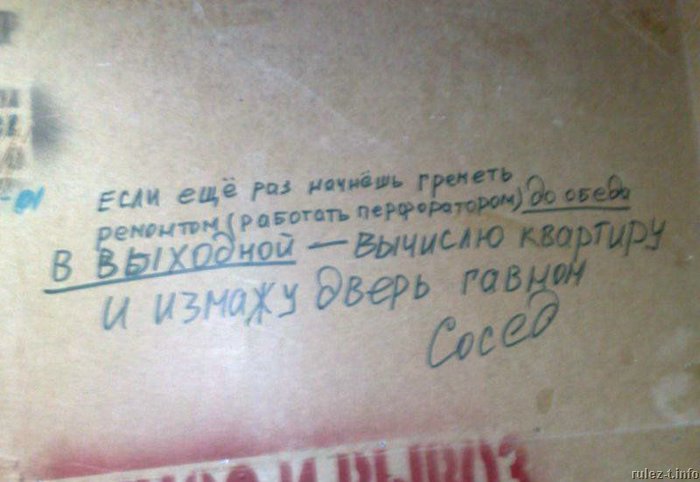 Если ещё раз начнёшь греметь
ремонтом (работать перфоратором) до обеда
в выходной — вычислю квартиру
и измажу дверь гавном
Сосед
И ВЫВОЗ
rulez-t.info